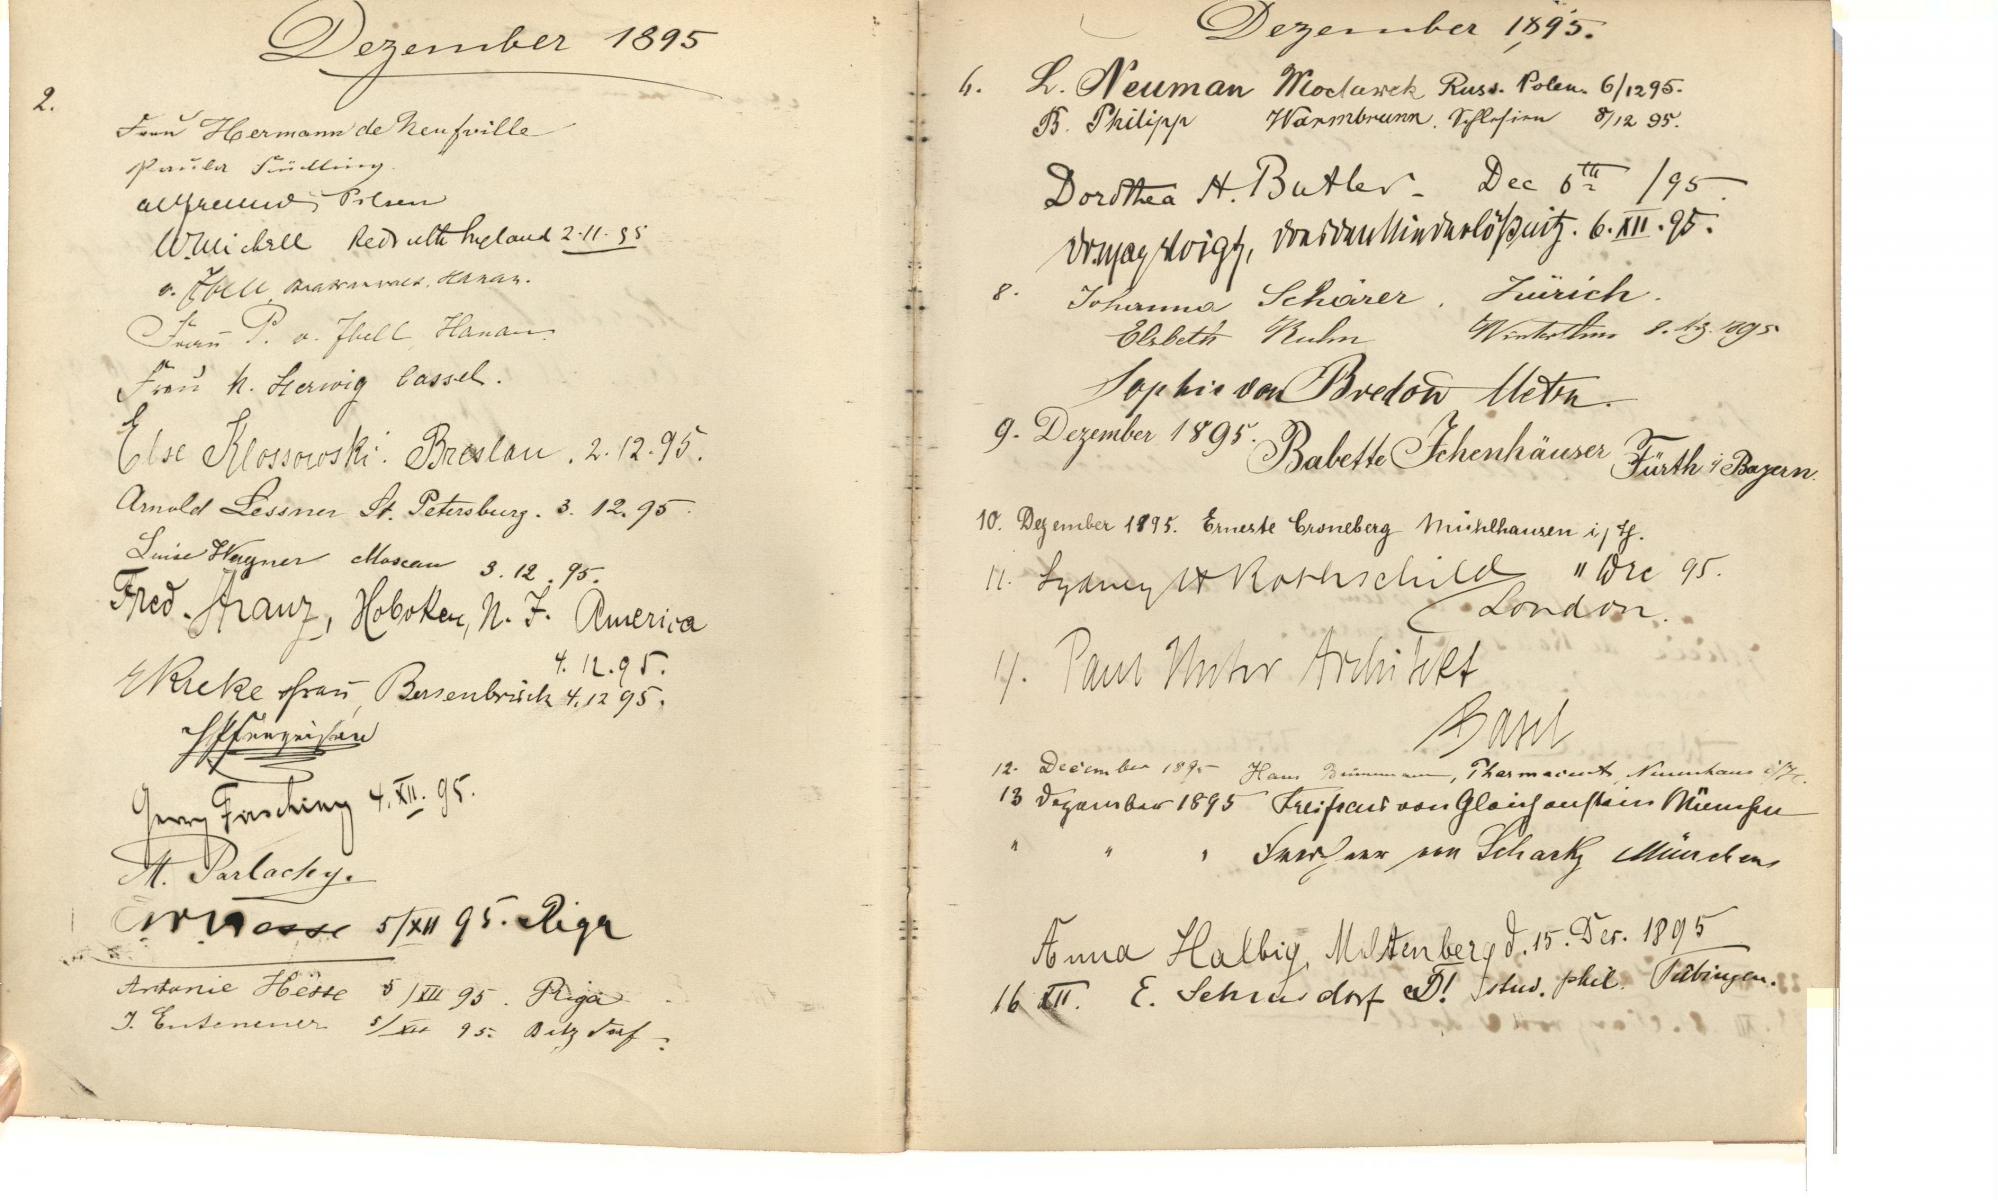 Dezember 1895
2.
Frau Hermann de Neufville
Paula
Pilsen
W. Michell Redruth England 2-11-95
v. Ibell Hanau.
Frau P. v. Ibell Hanau.
Frau h. Herwig Cassel.
Else Klossowski. Breslau. 2.12.95.
Arnold Lessner St. Petersburg. 3. 12.95.
Luise Wagner Moscau 3.12.95.
Fred. Kranz, Hoboken, N. J. America
4.12.95.
Kreke Frau, Bersenbrück 4.12 95.
Fasching 4.XII.95.
M. Parlachy.
Hesse 5/XII 95. Riga
Antonie Hesse 5/XII 95. Riga
5/XII 95.
Dezember 1895.
6. L. Neuman Wloclawek Russ. Polen. 6/12 95.
B. Philipp Warmbrunn. Schlesien 8/12 95.
Dorothea H. Butler - Dec 6th /95.
Voigt, Niederlößnitz. 6.XII.95.
8. Johanna Schärer, Zürich.
Elsbeth Kuhn Winterthur 8. 1895
Sophie von Bredow Metz.
9. Dezember 1895. Babette Ichenhäuser Fürth i/Bayern.
10. Dezember 1895. Erneste Croneberg Mühlhausen i/Th.
11. Sydney H Rothschild 11 Dec 95.
London.
11. Paul Architekt
Basel
12. December 1895 Hans Pharmaceut, Neuenhaus i/H.
13 Dezember 1895 Freifrau von Gleichenstein München
" " " Freifrau von Schacky München
Anna Halbig, Miltenberg d. 15. Dec. 1895
16 XII. E. Dr! stud. phil. Tübingen.